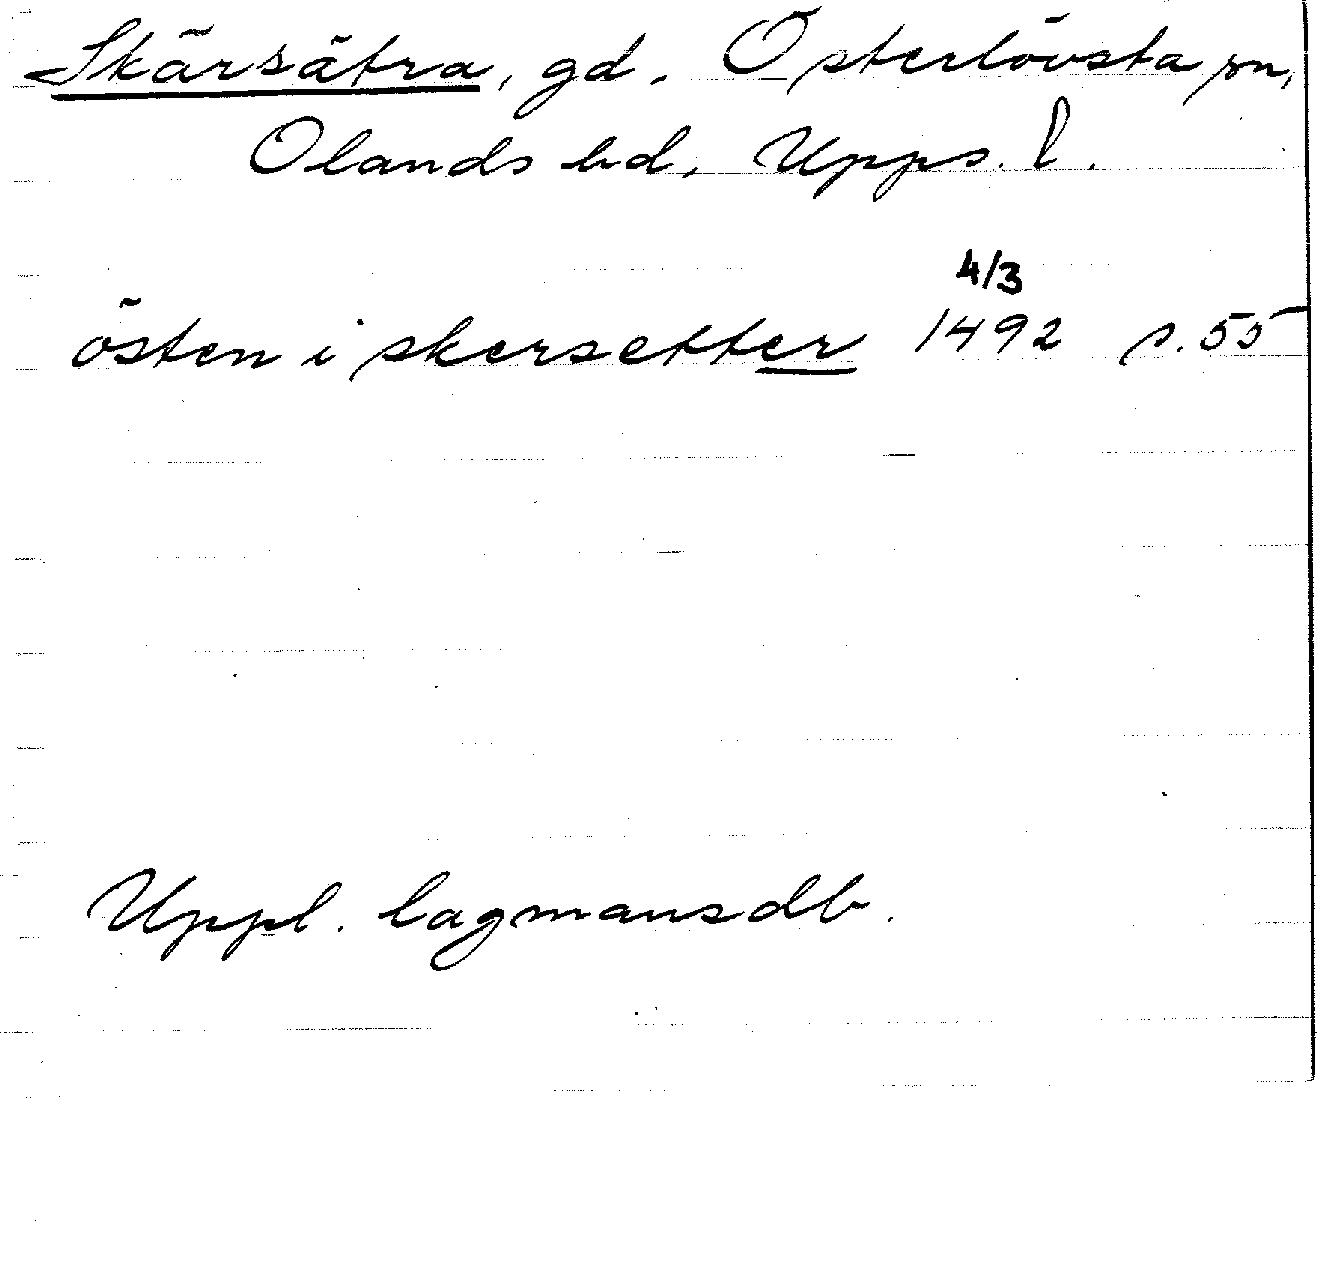 Skärsätra, gd. Österlövsta sn,
Olands hd, Upps. l.
4/3
östen i skersetter 1492 s. 55
Uppl. lagmansdb.